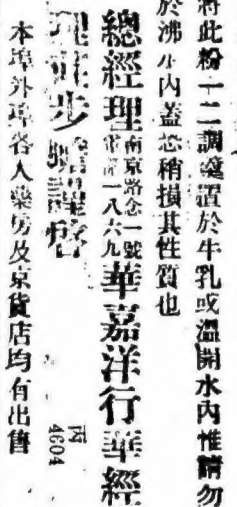 將此粉一二調羹置於牛乳或溫開水內惟請勿
於沸水內蓋恐稍損其性質也
總經理南京路念一號電話一八六九華嘉洋行華經
理 步 謹啓
本埠外埠各大藥房及京貨店均有出售
丙
4604